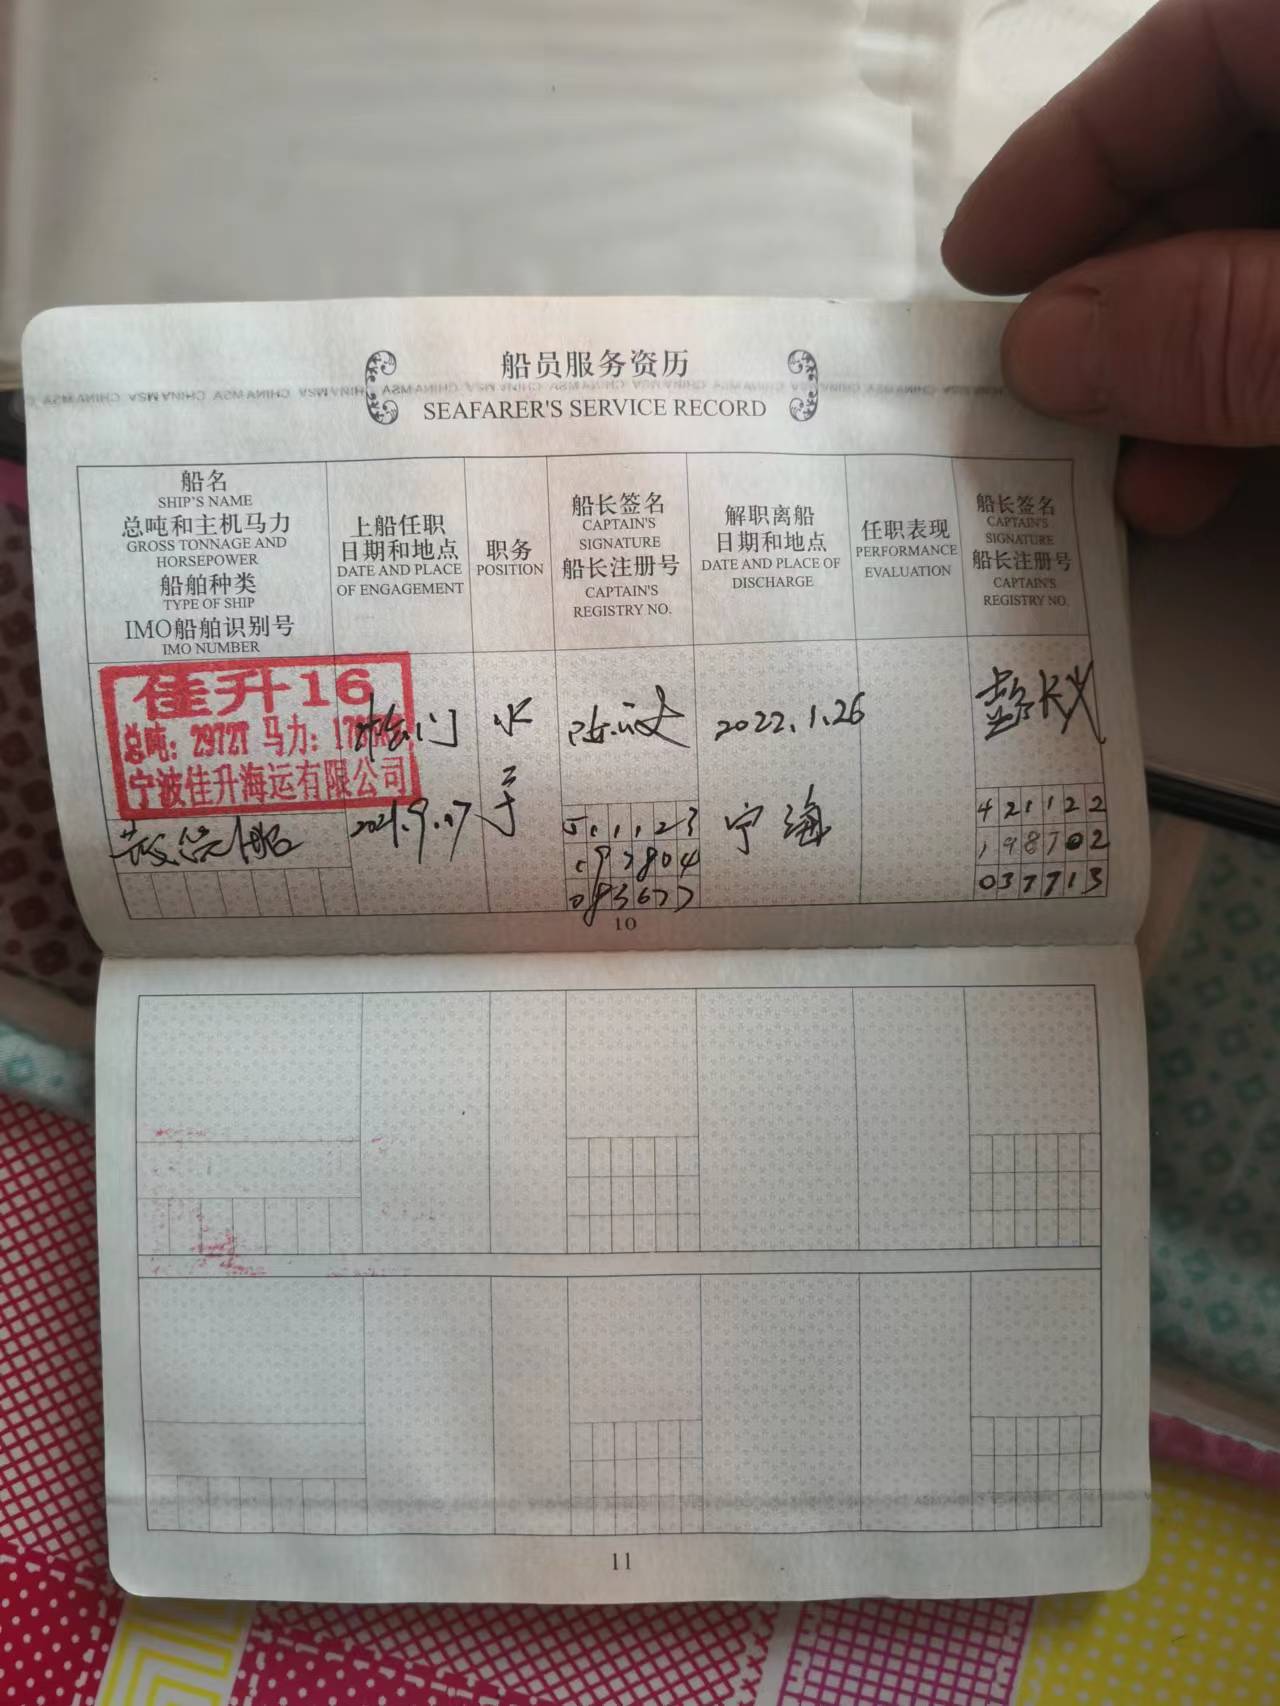 船员服务资历
CHINA MSA CHINA MSA CHINA MSA CHINA MSA
SEAFARER'S SERVICE RECORD
船名
SHIP'S NAME
总吨和主机马力
GROSS TONNAGE AND
HORSEPOWER
船舶种类
TYPE OF SHIP
IMO船舶识别号
IMO NUMBER
上船任职
日期和地点
DATE AND PLACE
OF ENGAGEMENT
职务
POSITION
船长签名
CAPTAIN'S
SIGNATURE
船长注册号
CAPTAIN'S
REGISTRY NO.
解职离船
日期和地点
DATE AND PLACE OF
DISCHARGE
任职表现
PERFORMANCE
EVALUATION
船长签名
CAPTAIN'S
SIGNATURE
船长注册号
CAPTAIN'S
REGISTRY NO.
佳升16
总吨：2972T 马力：
宁波佳升海运有限公司
散货船
2021.9.17
水
手
2022.1.26
宁海
421122
198702
037713
10
11